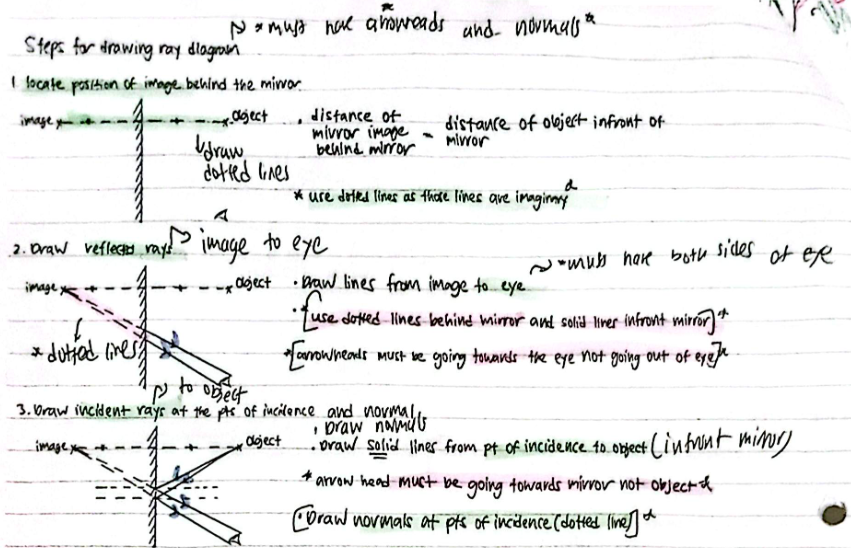 * must have arrowheads and normals *
Steps for drawing ray diagram
1 locate position of image behind the mirror.
image object · distance of mirror image behind mirror = distance of object infront of mirror
draw dotted lines
* use dotted lines as those lines are imaginary *
2. Draw reflected rays image to eye
* must have both sides of eye
image object · Draw lines from image to eye
· * [use dotted lines behind mirror and solid lines infront mirror] *
* dotted lines * [arrowheads must be going towards the eye not going out of eye] *
to object
3. Draw incident rays at the pts of incidence and normal
· Draw normals
image object · Draw solid lines from pt of incidence to object (infront mirror)
* arrow head must be going towards mirror not object *
[· Draw normals at pts of incidence (dotted line)] *